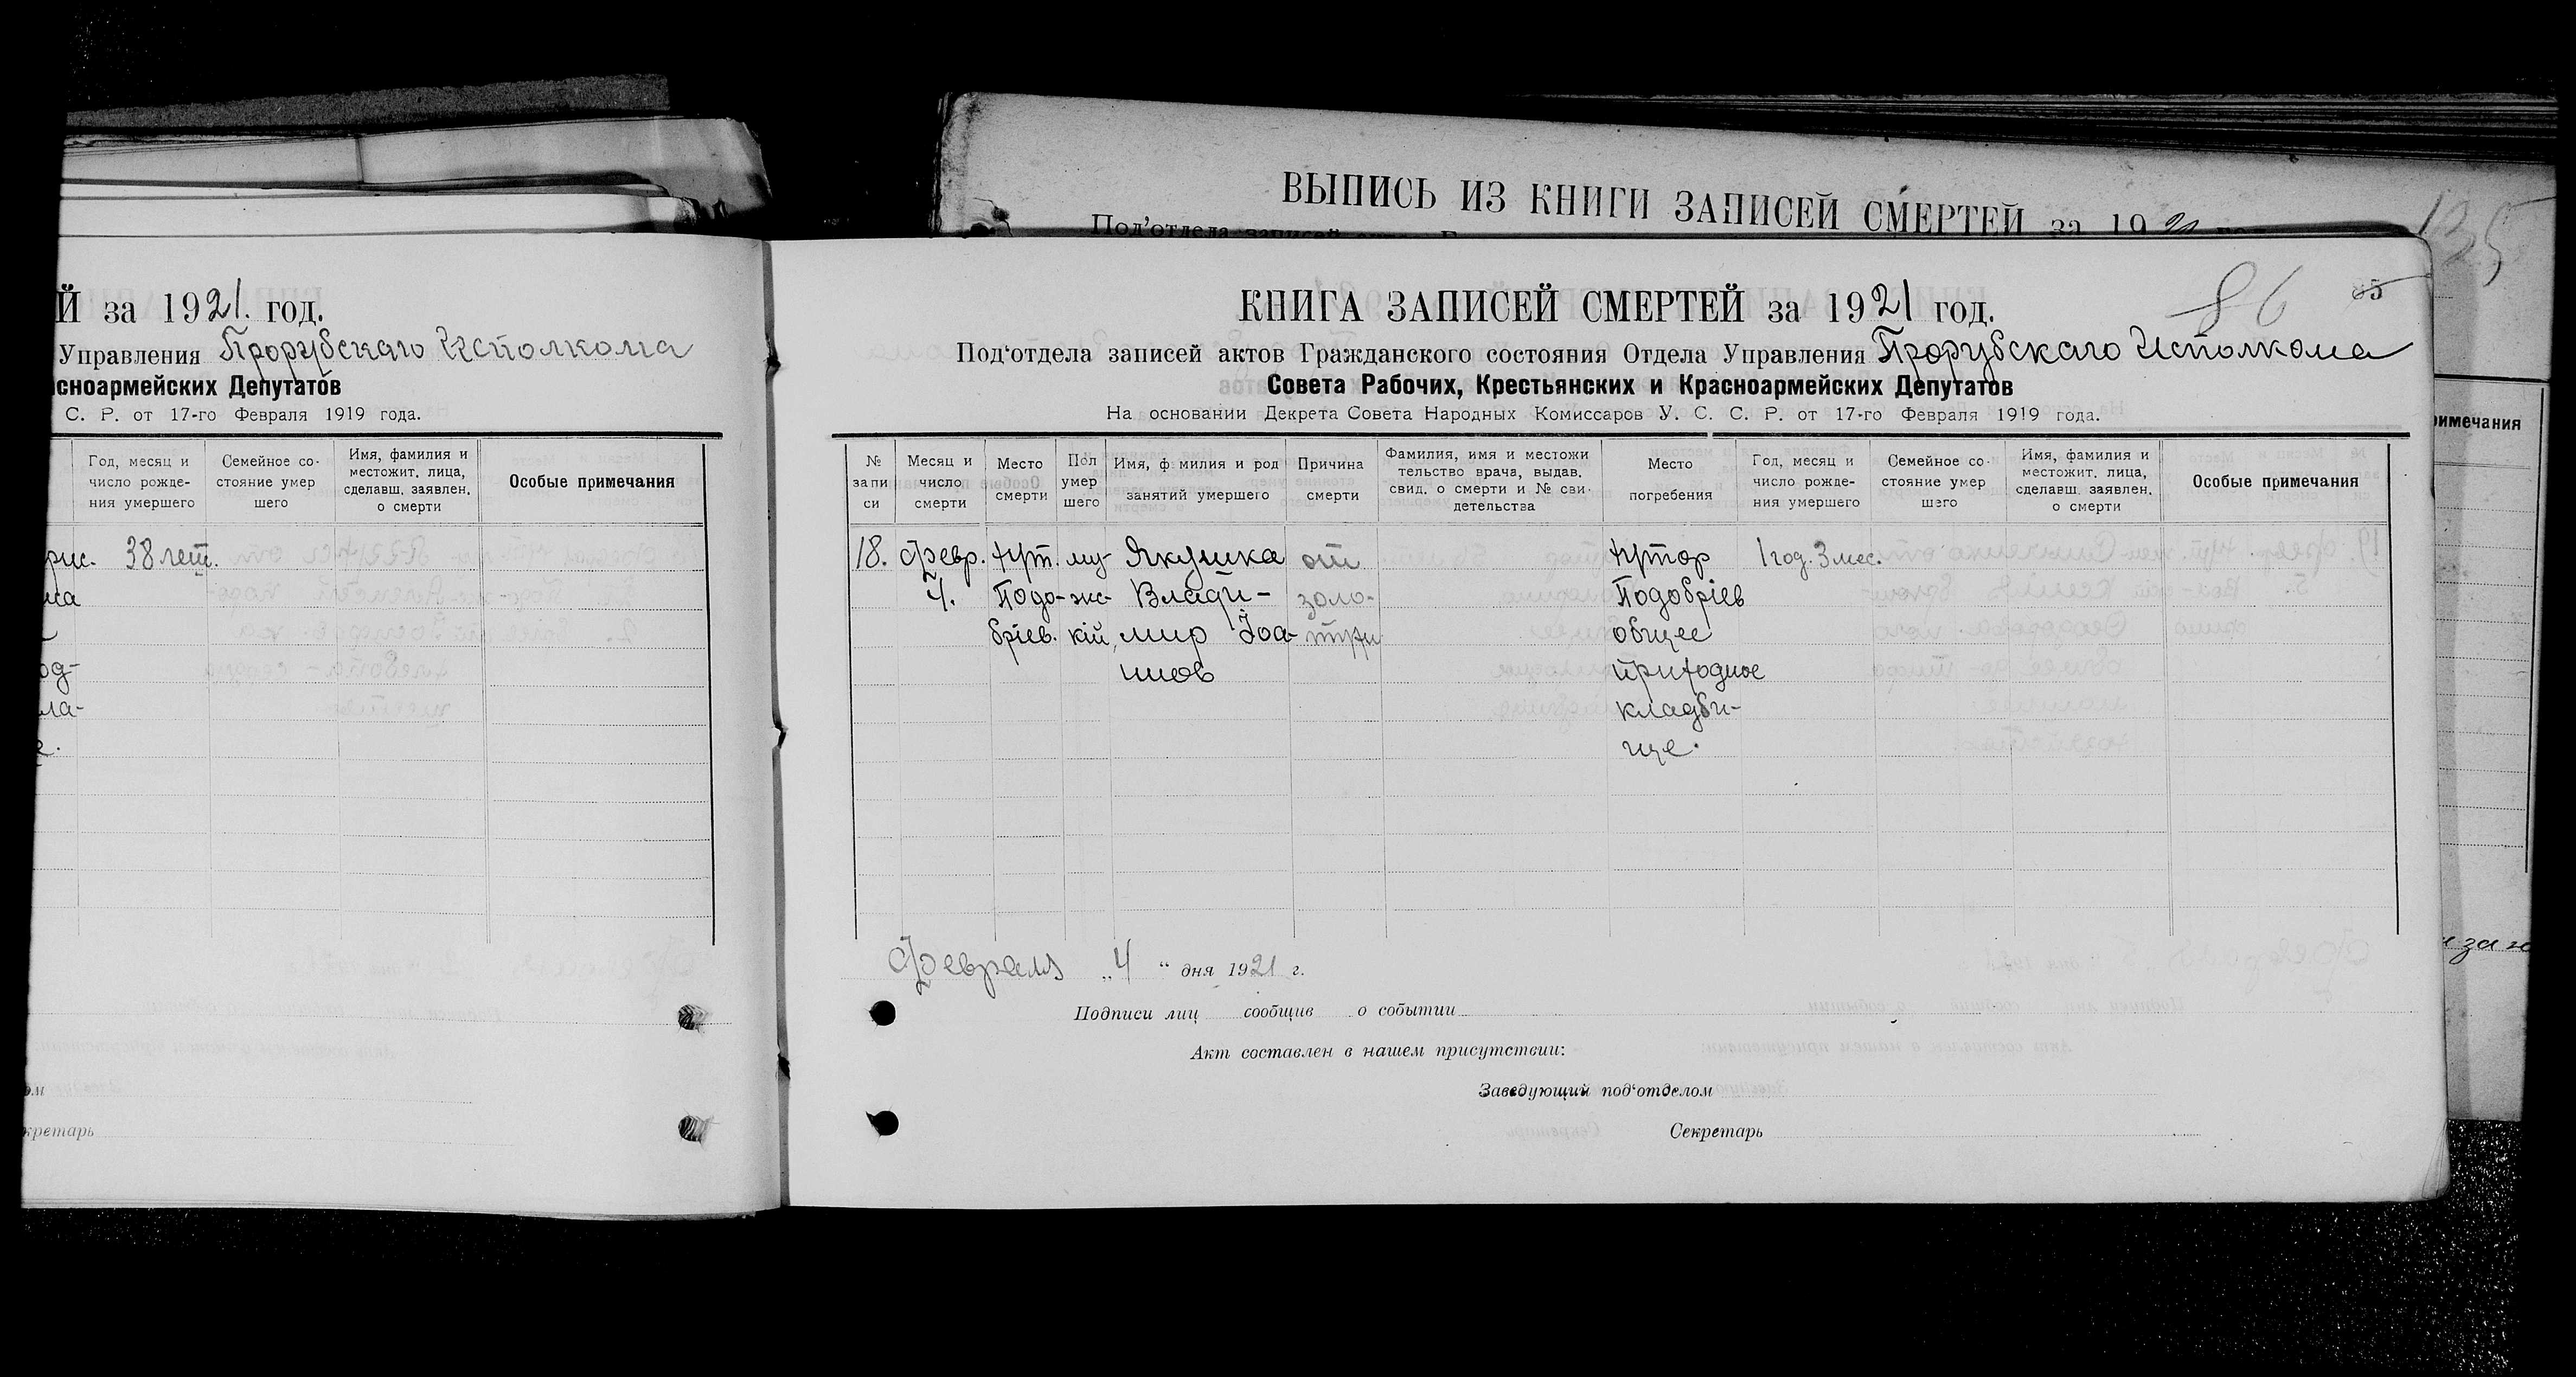 ВЫПИСЬ ИЗ КНИГИ ЗАПИСЕЙ СМЕРТЕЙ за 19
Под'отдела записей
135
Й за 1921. год.
Управления Прорубскаго Исполкома
асноармейских Депутатов
С. С. Р. от 17-го Февраля 1919 года.
Год, месяц и число рождения умершего
Семейное состояние умершего
Имя, фамилия и местожит. лица, сделавш. заявлен. о смерти
Особые примечания
рис. 38 лет.
ма
од-
ла-
е.
ом
кретарь
КНИГА ЗАПИСЕЙ СМЕРТЕЙ за 1921 год.
86
85
Под‘отдела записей актов Гражданского состояния Отдела Управления Прорубскаго Исполкома
Совета Рабочих, Крестьянских и Красноармейских Депутатов
На основании Декрета Совета Народных Комиссаров У. С. С. Р. от 17-го Февраля 1919 года.
№ запи си
Месяц и число смерти
Место смерти
Пол умер шего
Имя, ф милия и род занятий умершего
Причина смерти
Фамилия, имя и местожи тельство врача, выдав. свид. о смерти и № сви- детельства
Место погребения
Год, месяц и число рожде- ния умершего
Семейное со- стояние умер шего
Имя, фамилия и местожит. лица, сделавш. заявлен. о смерти
Особые примечания
18. февр. хут. му- Якушка от хутор 1 год. 3 мес.
4. Подо- жс- Влади- золо- Подобріев
бріев. кій, мир Іоа- тухи общее
нов приходное
кладби-
ще.
Февраля „4“ дня 1921 г.
Подписи лиц сообщив о событии
Акт составлен в нашем присутствии:
Заведующий под‘отделом
Секретарь
римечания
за н